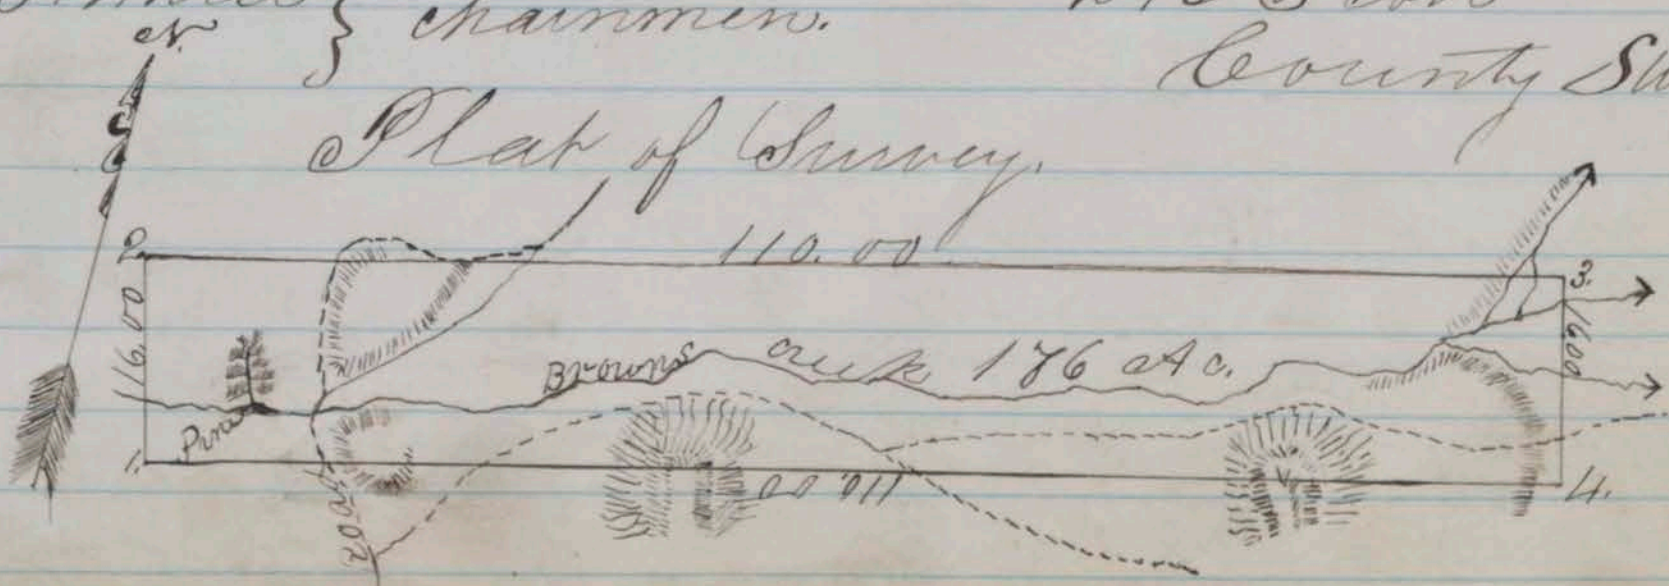 N
} Chainmen.
County Su
Plat of Survey.
2.
110.00
3.
116.00
1600
Browns creek 176 Ac.
Pine
1.
110.00
4.
Road